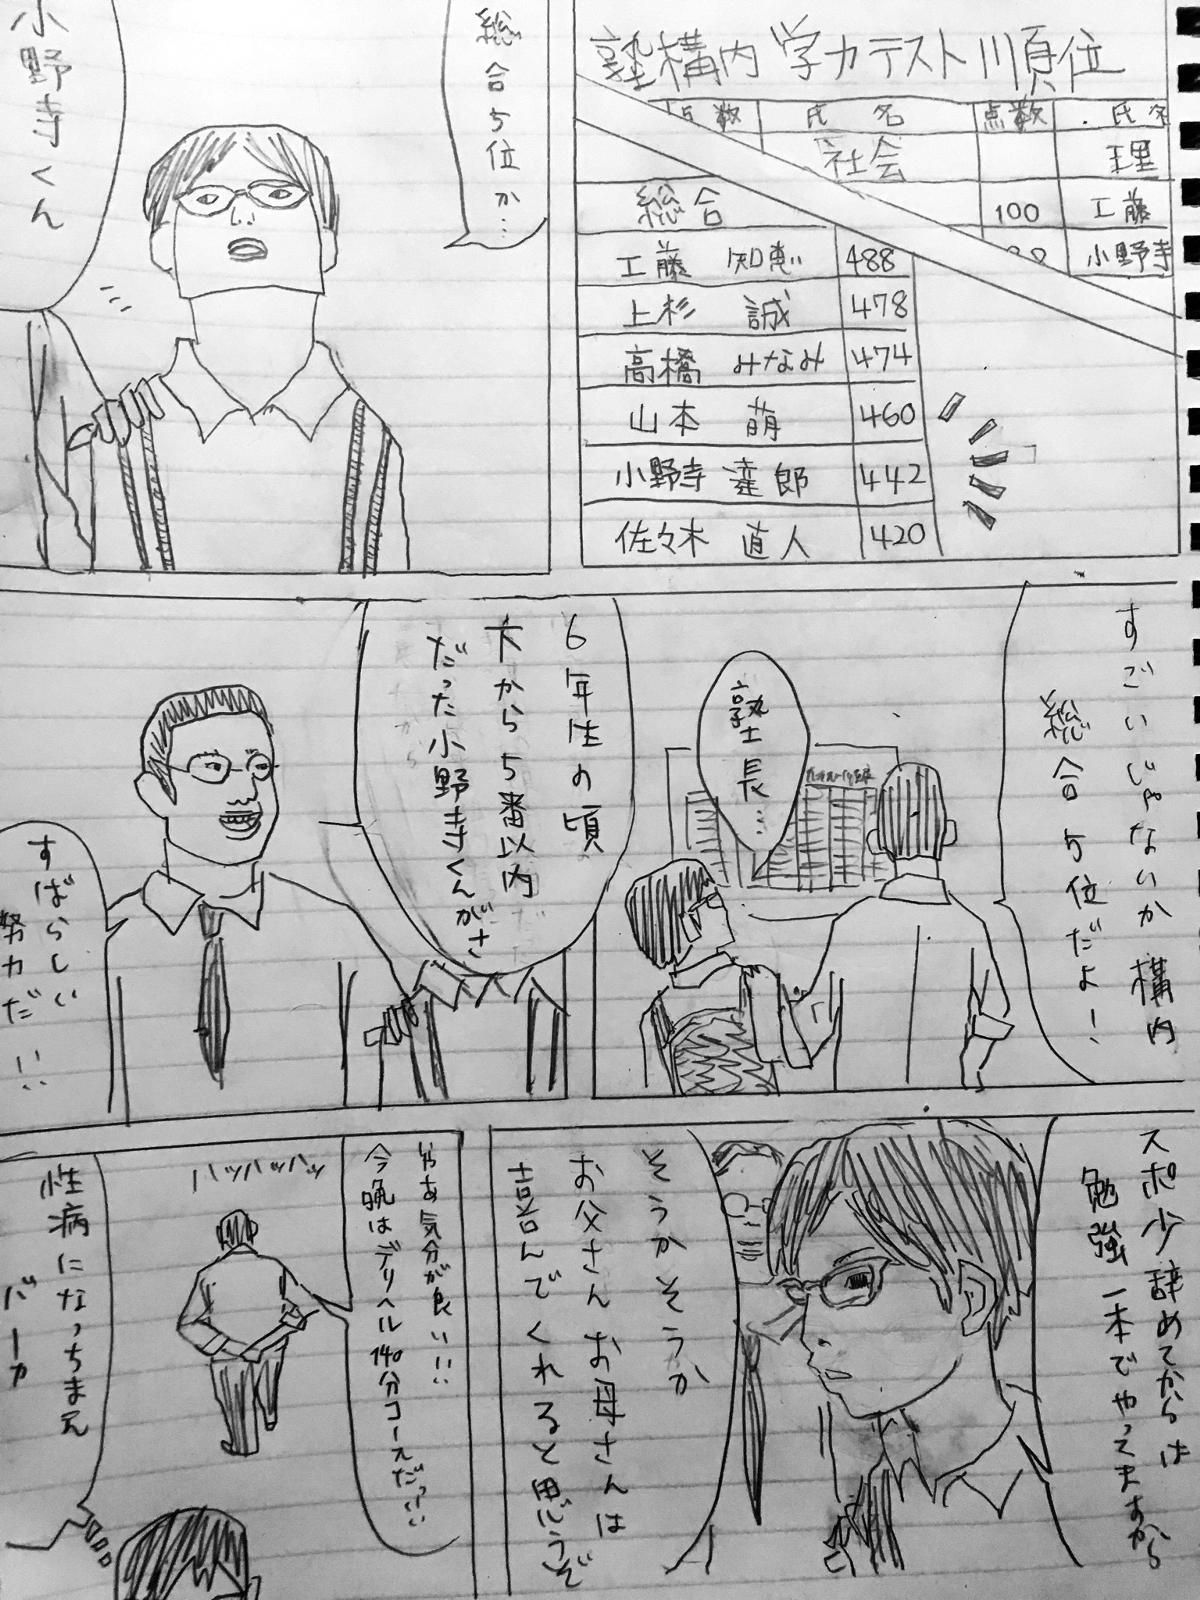 塾構内学力テスト順位
点数 氏名 点数 氏名
社会 理
総合 100 工藤
小野寺
工藤 知恵 488
上杉 誠 478
高橋 みなみ 474
山本 萌 460
小野寺 達郎 442
佐々木 直人 420
総合5位か…
小野寺くん
すごいじゃないか構内
総合5位だよ!
塾長…
6年生の頃
下から5番以内
だった小野寺くんがさ
すばらしい
努力だ!!
スポ少辞めてからは
勉強一本でやってますから
そうかそうか
お父さんお母さんは
喜んでくれると思うぞ
やあ気分が良い!!!
今晩はデリヘル140分コースだっ!!!
ハッハッハッ
性病になっちまえ
バーカ